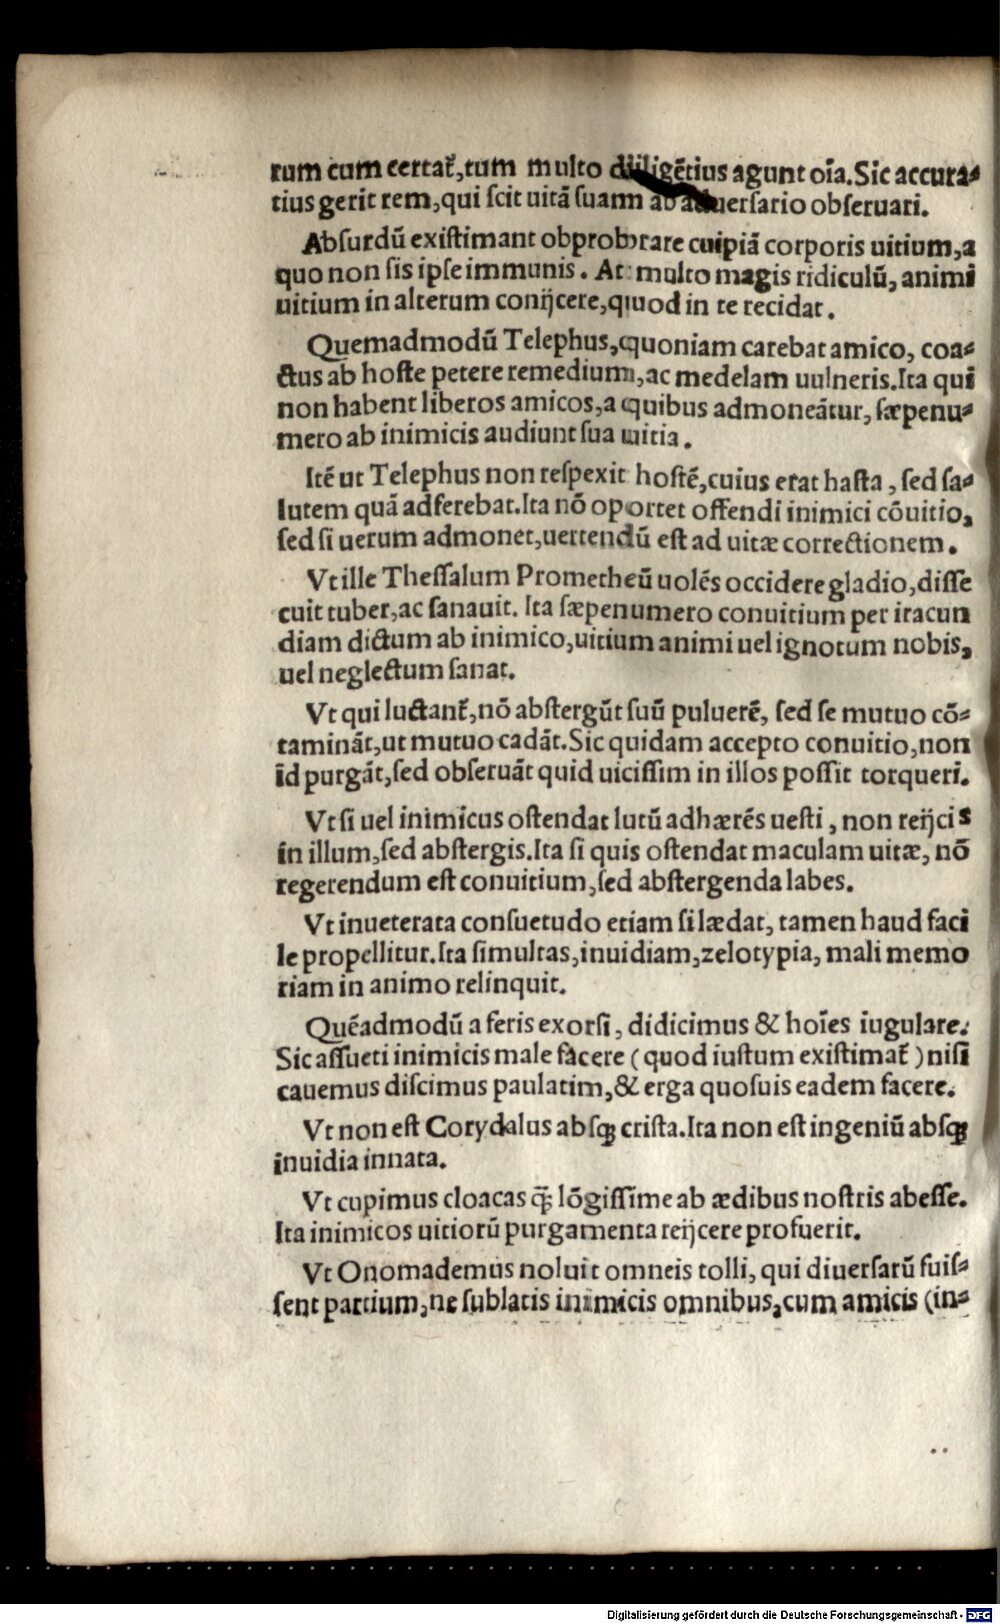 rum cum certat᷑, tum multo diligẽtius agunt oĩa. Sic accura⸗
tius gerit rem, qui scit uitã suam ab aduersario obseruari.
Absurdũ existimant obprobrare cuipiã corporis uitium, a
quo non sis ipse immunis. At multo magis ridiculũ, animi
uitium in alterum conijcere, quod in te recidat.
Quemadmodũ Telephus, quoniam carebat amico, coa⸗
ctus ab hoste petere remedium, ac medelam uulneris. Ita qui
non habent liberos amicos, a quibus admoneãtur, sæpenu⸗
mero ab inimicis audiunt sua uitia.
Itẽ ut Telephus non respexit hostẽ, cuius erat hasta, sed sa⸗
lutem quã adferebat. Ita nõ oportet offendi inimici cõuitio,
sed si uerum admonet, uertendũ est ad uitæ correctionem.
Vt ille Thessalum Prometheũ uolẽs occidere gladio, disse
cuit tuber, ac sanauit. Ita sæpenumero conuitium per iracun
diam dictum ab inimico, uitium animi uel ignotum nobis,
uel neglectum sanat.
Vt qui luctant᷑, nõ abstergũt suũ puluerẽ, sed se mutuo cõ⸗
taminãt, ut mutuo cadãt. Sic quidam accepto conuitio, non
id purgãt, sed obseruãt quid uicissim in illos possit torqueri.
Vt si uel inimicus ostendat lutũ adhærẽs uesti, non reijcis
in illum, sed abstergis. Ita si quis ostendat maculam uitæ, nõ
regerendum est conuitium, sed abstergenda labes.
Vt inueterata consuetudo etiam si lædat, tamen haud faci
le propellitur. Ita simultas, inuidiam, zelotypia, mali memo
riam in animo relinquit.
Quẽadmodũ a feris exorsi, didicimus & hoĩes iugulare.
Sic assueti inimicis male facere (quod iustum existimat᷑) nisi
cauemus discimus paulatim, & erga quosuis eadem facere.
Vt non est Corydalus absqꝫ crista. Ita non est ingeniũ absqꝫ
inuidia innata.
Vt cupimus cloacas q̃ꝫ lõgissime ab ædibus nostris abesse.
Ita inimicos uitiorũ purgamenta reijcere profuerit.
Vt Onomademus noluit omneis tolli, qui diuersarũ fuis⸗
sent partium, ne sublatis inimicis omnibus, cum amicis (in⸗
Digitalisierung gefördert durch die Deutsche Forschungsgemeinschaft - DFG